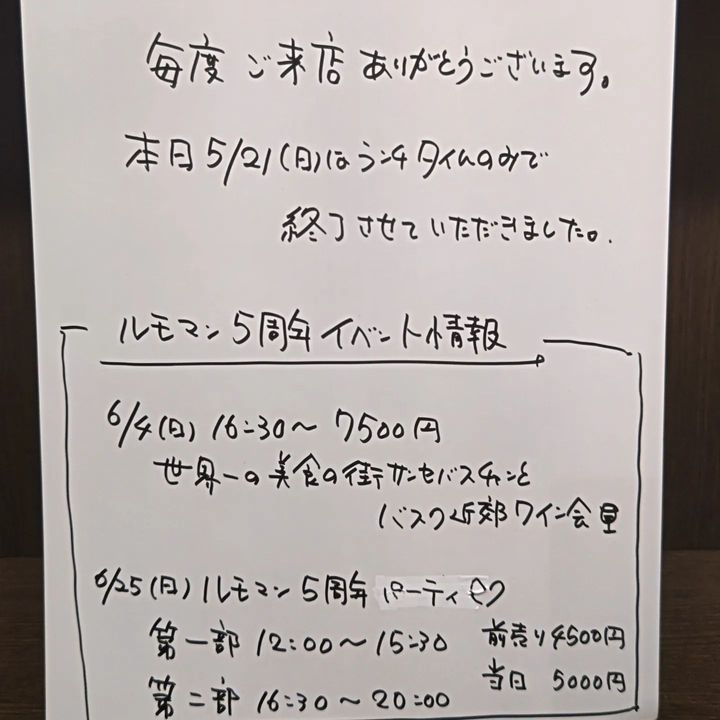 毎度ご来店ありがとうございます。
本日5/21(日)はランチタイムのみで
終了させていただきました。
ルモマン5周年イベント情報
6/4(日) 16:30〜 7500円
世界一の美食の街サンセバスチャンと
バスク近郊ワイン会
6/25(日)ルモマン5周年パーティ
第一部 12:00〜15:30 前売り4500円
第二部 16:30〜20:00 当日 5000円